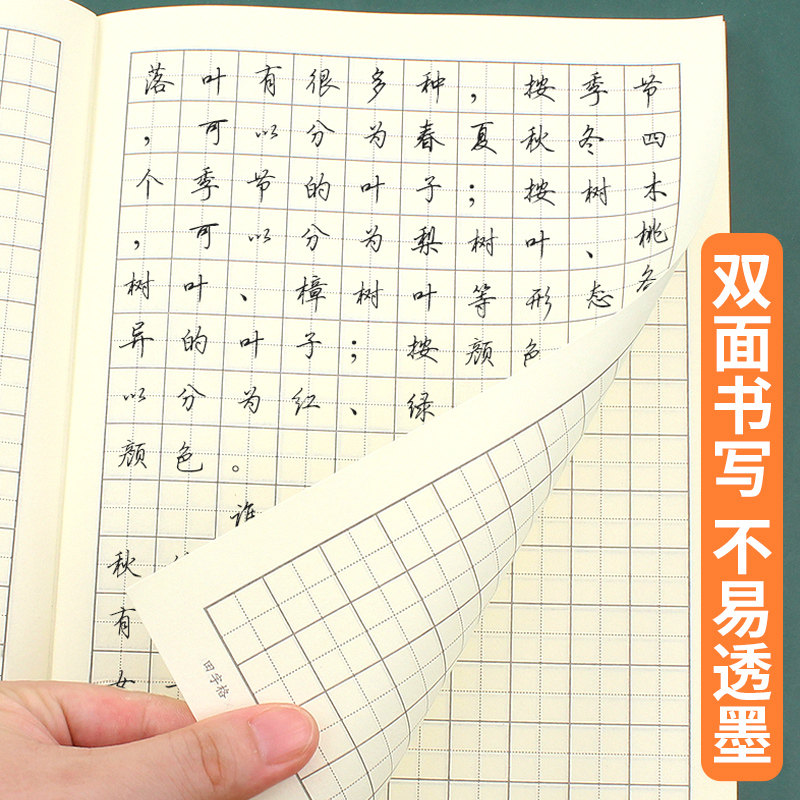 落叶有很多种，按季节
，可以分为春夏秋冬四
个季节的叶子；按树木
，可以分为梨树叶、桃
树叶、樟树叶等形态各
异的叶子；按颜色
以分为红、绿
颜色。
谁
秋
有
女
田字格
双面书写 不易透墨